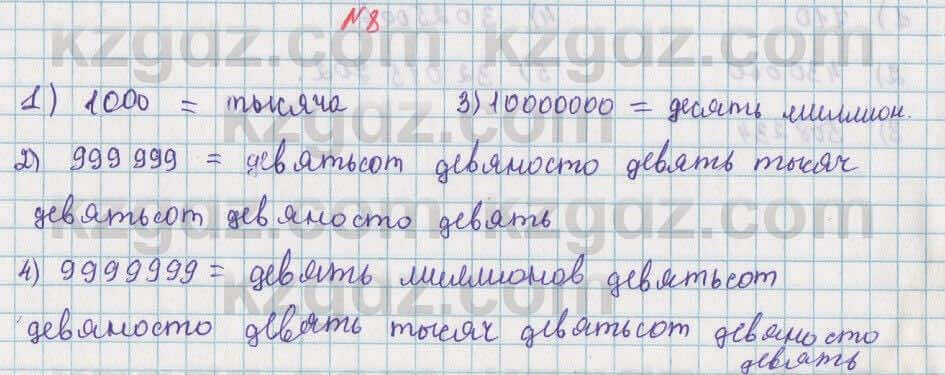 N8
1) 1000 = тысяча 3) 10000000 = десять миллион.
2) 999 999 = девятьсот девяносто девять тысяч
девятьсот девяносто девять
4) 9999999 = девять миллионов девятьсот
девяносто девять тысяч девятьсот девяносто
девять
kzgdz.com
kzgdz.com
kzgdz.com
kzgdz.com